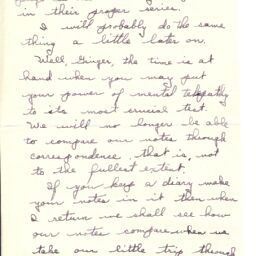 in their proper series.
I will probably do the same
thing a little later on.
Well, Ginger, the time is at
hand when you may put
your power of mental telepathy
to its most crucial test.
We will no longer be able
to compare our notes through
correspondence, that is, not
to the fullest extent.
If you keep a diary make
your notes in it then when
I return we shall see how
our notes compare when we
take our little trip through